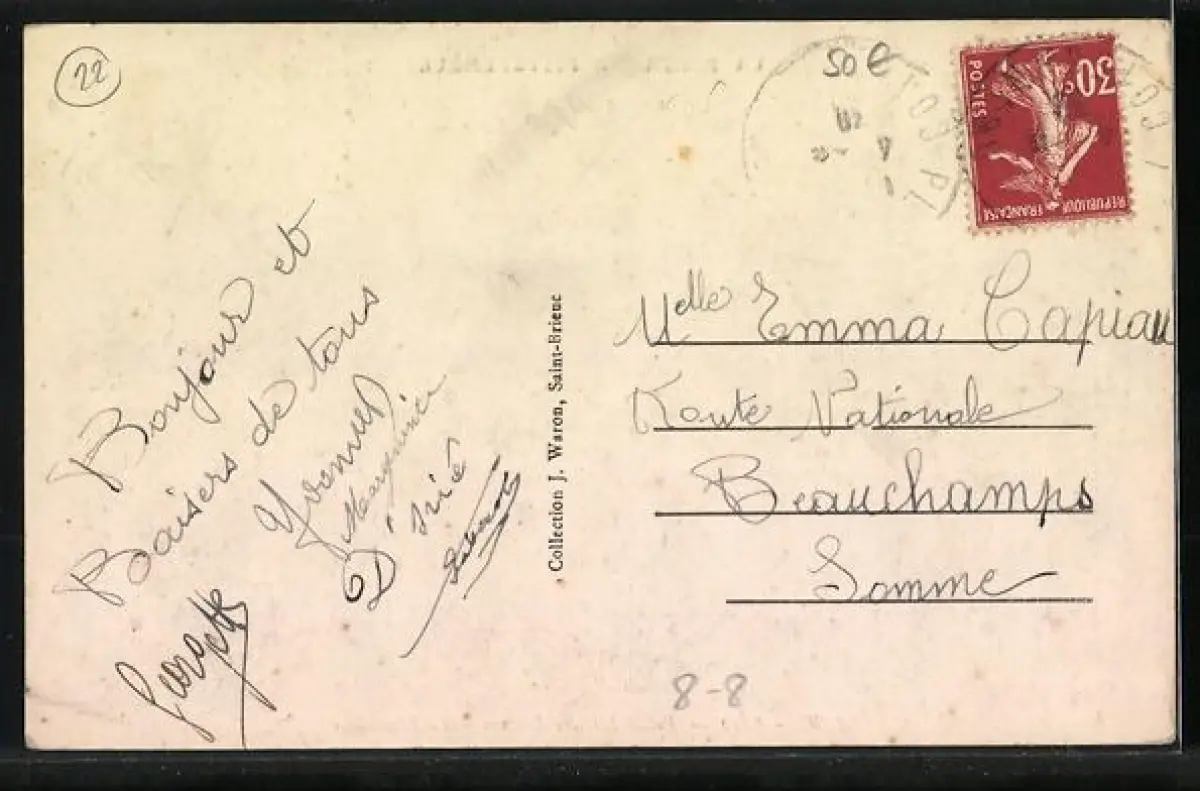 22
50 €
30c
POSTES
REPUBLIQUE FRANÇAISE
Bonjour et
Baisers de tous
Yvonne
D
Georgette
Collection J. Waron, Saint-Brieuc
Melle Emma Capiau
Route Nationale
Beauchamps
Somme
8-8